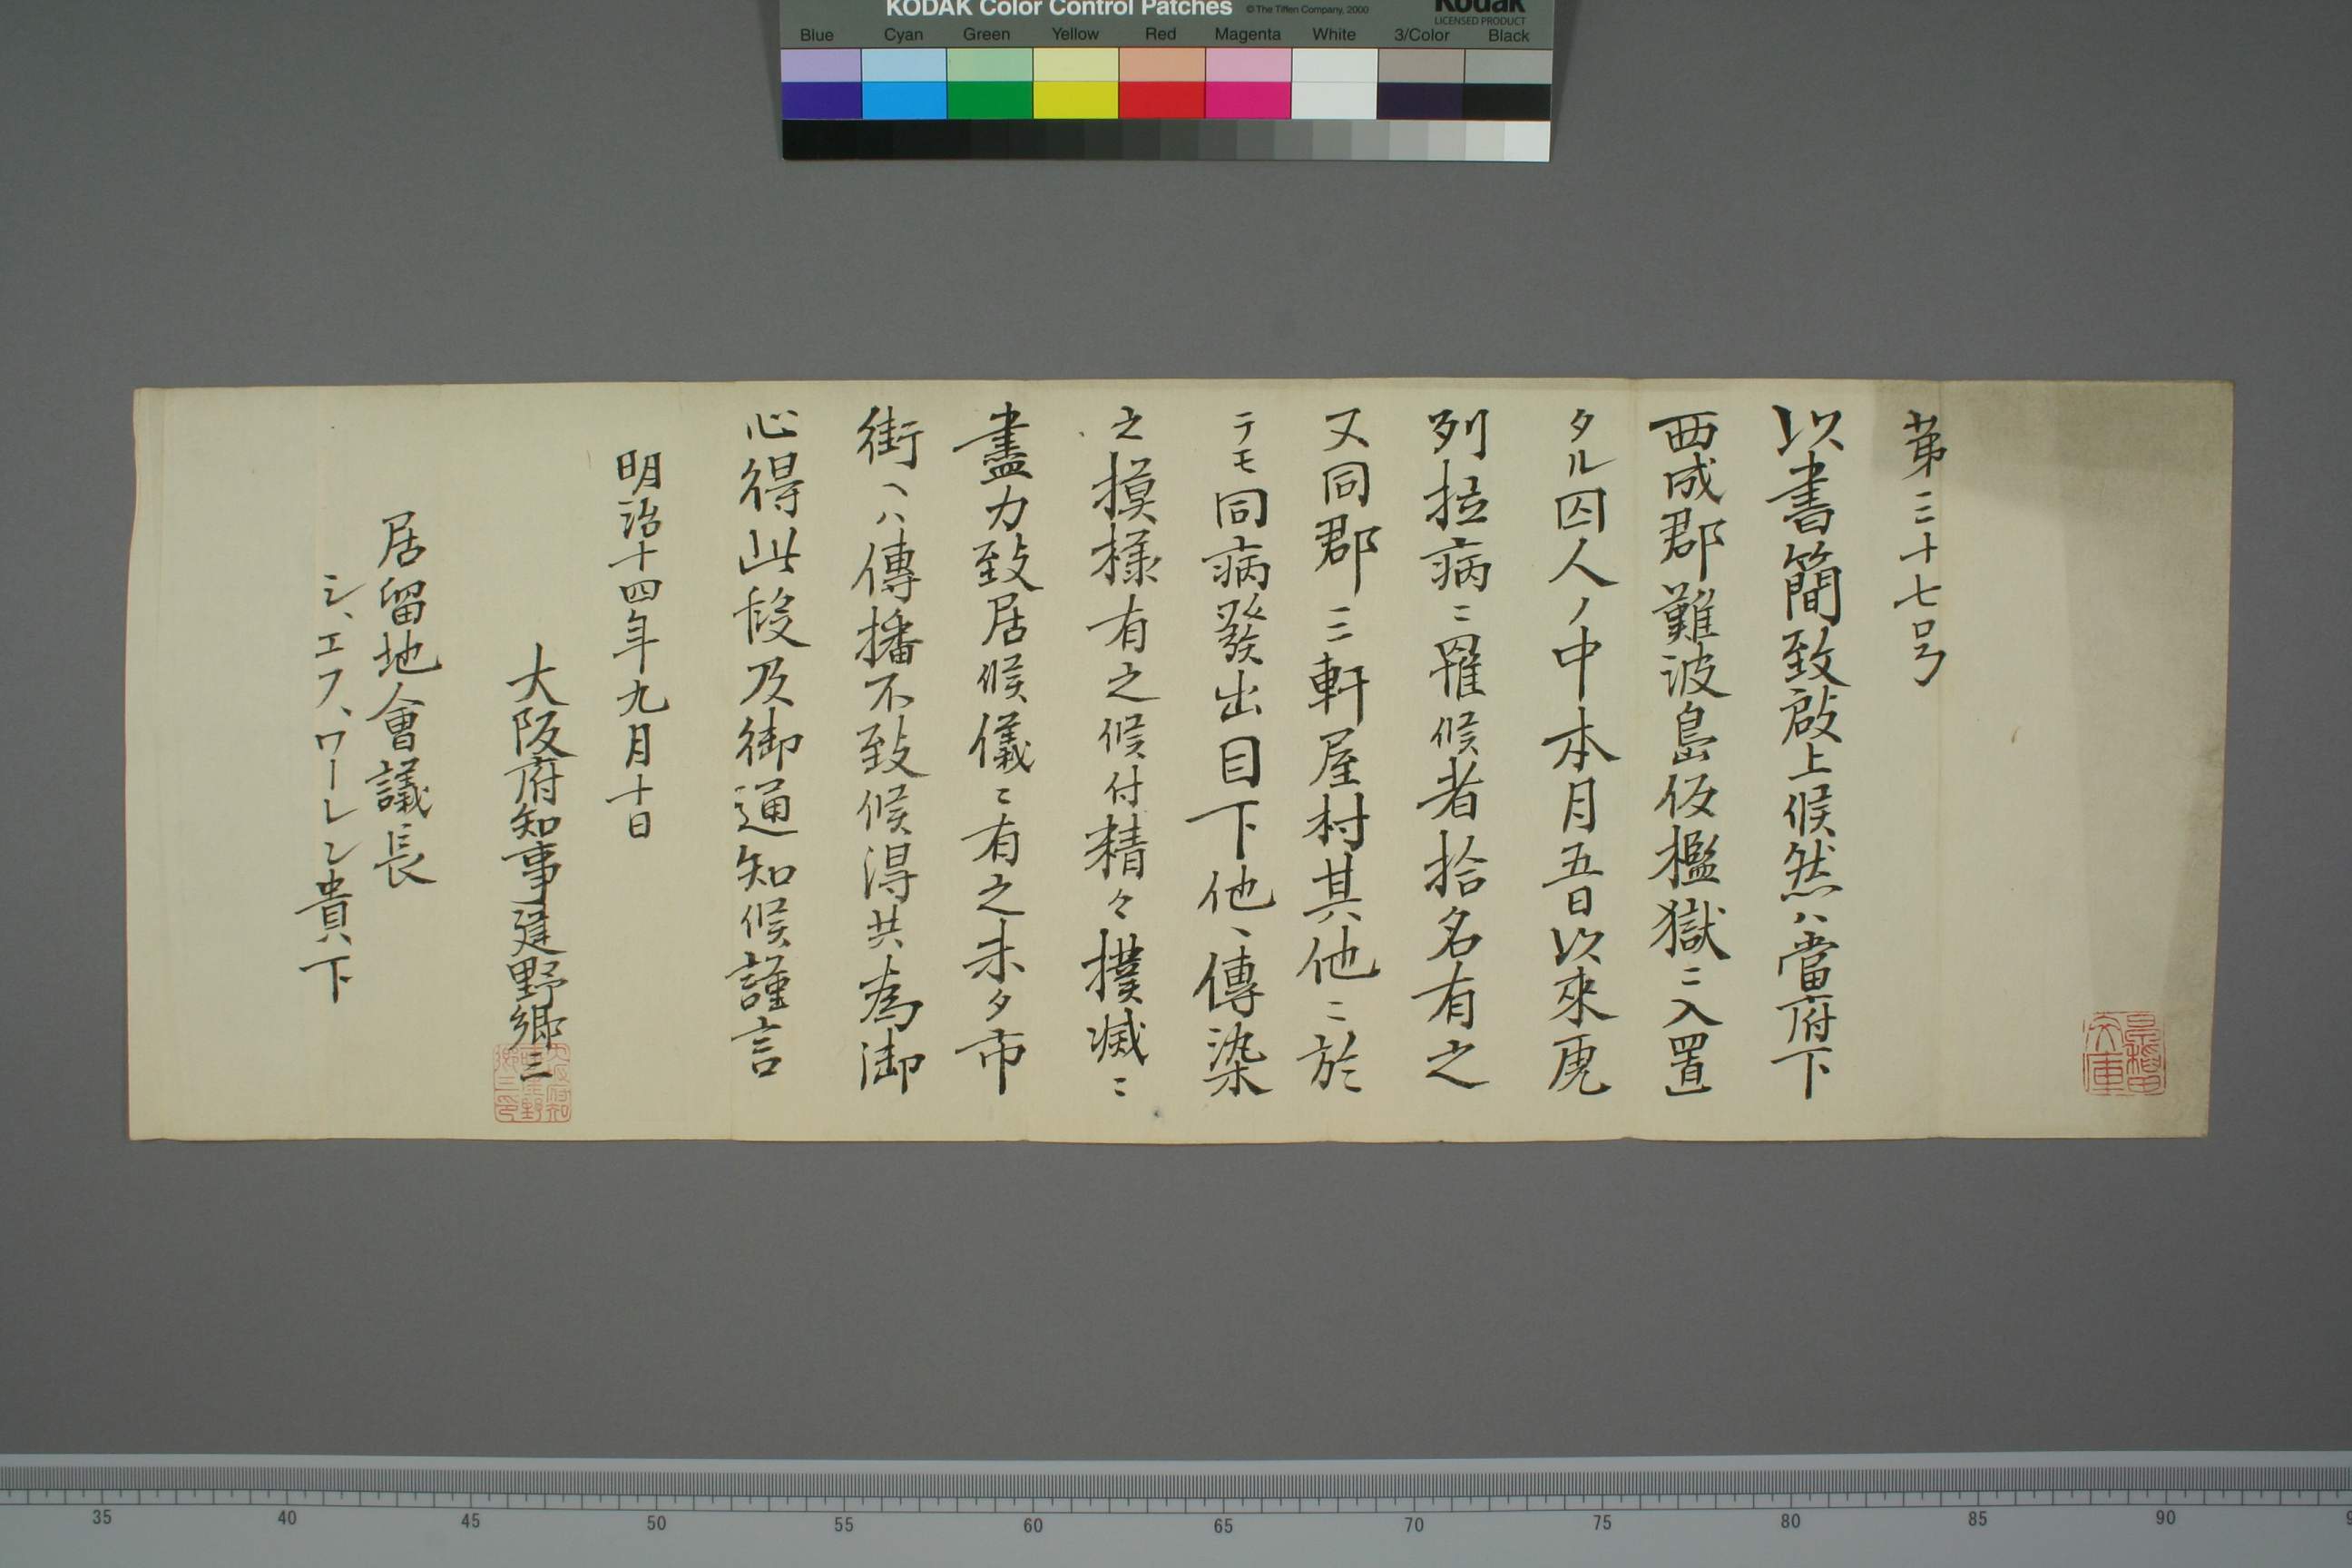 KODAK Color Control Patches © The Tiffen Company, 2000 Kodak
LICENSED PRODUCT
Blue Cyan Green Yellow Red Magenta White 3/Color Black
第三十七号
以書簡致啟上候然ハ當府下
西成郡難波島仮檻獄ニ入置
タル囚人ノ中本月五日以來虎
列拉病ニ罹候者拾名有之
又同郡三軒屋村其他ニ於
テモ同病發出目下他ヘ傳染
之摸樣有之候付精々撲滅ニ
盡力致居候儀ニ有之未タ市
街ヘハ傳播不致候得共為御
心得此段及御通知候謹言
明治十四年九月十日
大阪府知事建野郷三
居留地會議長
シ、エフ、ワーレン貴下
35 40 45 50 55 60 65 70 75 80 85 90